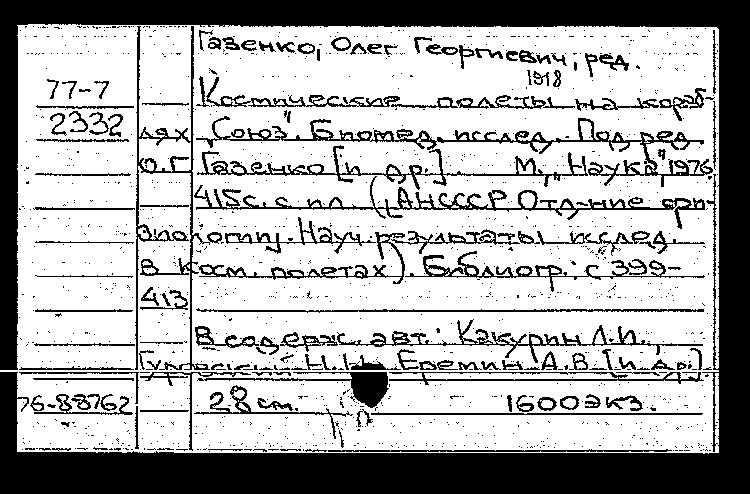 Газенко, Олег Георгиевич, ред.
1918
77-7
Космические полеты на кораб-
2332
лях „Союз". Биомед. исслед. Под ред.
О.Г Газенко [и др.]. М., „Наука", 1976
415с. с ил. (АНСССР Отд-ние
физиологии. Науч. результаты исслед.
в косм. полетах). Библиогр.: с 399-
413
В содерж. авт.: Какурин Л.И.,
Гуровский Н.Н., Еремин А.В. [и др.].
76-88762
28 см.
1600экз.